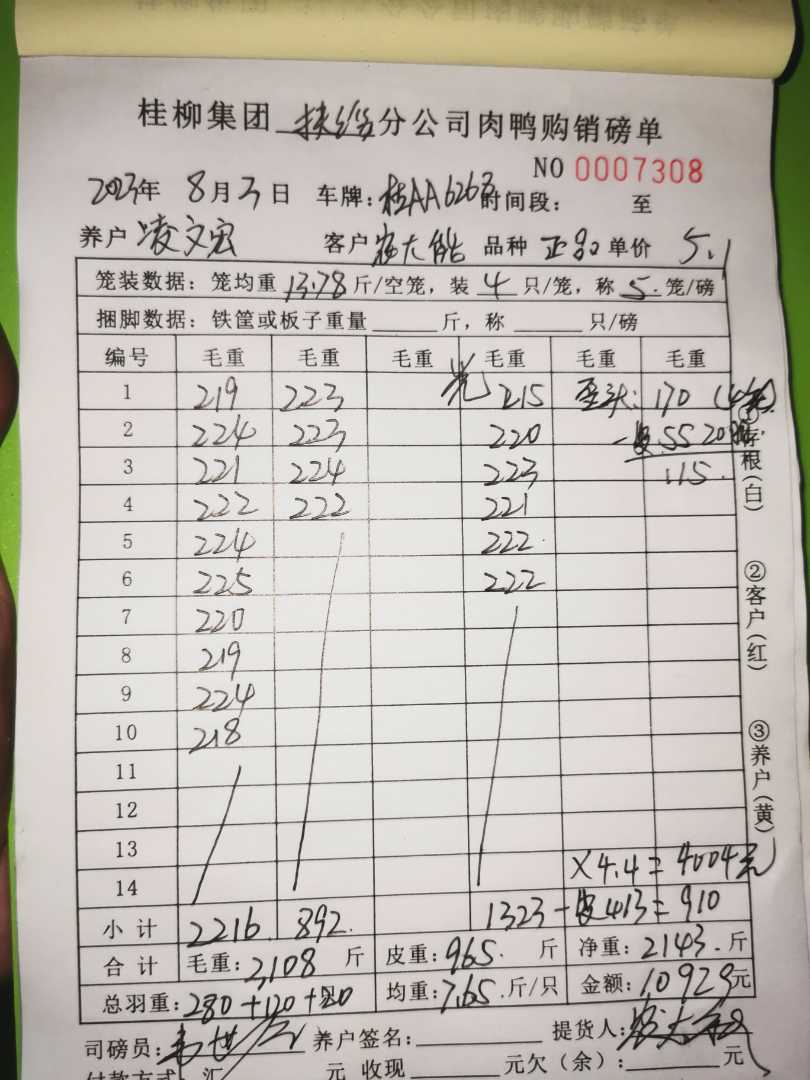 桂柳集团 扶绥 分公司肉鸭购销磅单
NO 0007308
2023年 8月3日 车牌:桂AA626 时间段: 至
养户 凌文宏 客户 大能 品种 正品 单价 5.1
笼装数据:笼均重 13.78 斤/空笼,装 4 只/笼,称 5. 笼/磅
捆脚数据:铁筐或板子重量 斤,称 只/磅
编号 毛重 毛重 毛重 毛重 毛重 毛重
1 219 223 光 215 歪头: 170 (4笼)
2 224 223 220 -皮 55 20
3 221 224 223 115.
4 222 222 221
5 224 222
6 225 222
7 220
8 219
9 224
10 218
11
12
13 ×4.4=4004元
14
小计 2216. 892. 1323-皮413=910
合计 毛重:3108 斤 皮重:965. 斤 净重:2143.斤
总羽重:280+120+20 均重:7.65.斤/只 金额:10929元
司磅员: 养户签名: 提货人:
付款方式 汇 元 收现 元欠(余): 元
①存根(白)
②客户(红)
③养户(黄)